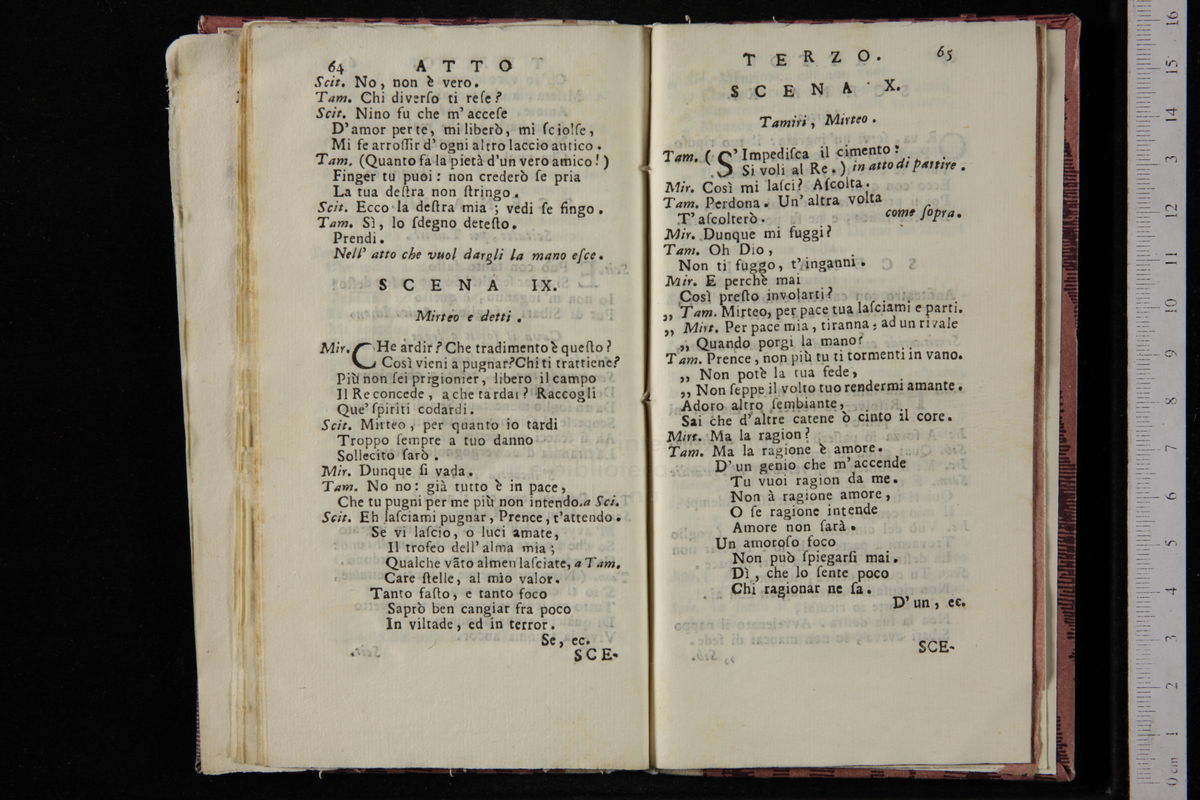 64 ATTO
Scit. No, non è vero.
Tam. Chi diverſo ti reſe?
Scit. Nino fu che m' acceſe
D'amor per te, mi liberò, mi ſciolſe,
Mi fe arroſſir d' ogni altro laccio antico.
Tam. (Quanto fa la pietà d'un vero amico!)
Finger tu puoi: non crederò ſe pria
La tua deſtra non ſtringo.
Scit. Ecco la deſtra mia; vedi ſe fingo.
Tam. Sì, lo ſdegno deteſto.
Prendi.
Nell' atto che vuol dargli la mano eſce.
SCENA IX.
Mirteo e detti.
Mir. CHe ardir? Che tradimento è queſto?
Così vieni a pugnar? Chi ti trattiene?
Più non ſei prigionier, libero il campo
Il Re concede, a che tardar? Raccogli
Que' ſpiriti codardi.
Scit. Mirteo, per quanto io tardi
Troppo ſempre a tuo danno
Sollecito ſarò.
Mir. Dunque ſi vada.
Tam. No no: già tutto è in pace,
Che tu pugni per me più non intendo. a Sci.
Scit. Eh laſciami pugnar, Prence, t'attendo.
Se vi laſcio, o luci amate,
Il trofeo dell' alma mia;
Qualche vãto almen laſciate, a Tam.
Care ſtelle, al mio valor.
Tanto faſto, e tanto foco
Saprò ben cangiar fra poco
In viltade, ed in terror.
Se, ec.
SCE-
TERZO. 65
SCENA X.
Tamiri, Mirteo.
Tam. (S' Impediſca il cimento:
Si voli al Re.) in atto di partire.
Mir. Così mi laſci? Aſcolta.
Tam. Perdona. Un' altra volta
T' aſcolterò. come ſopra.
Mir. Dunque mi fuggi?
Tam. Oh Dio,
Non ti fuggo, t' inganni.
Mir. E perchè mai
Così preſto involarti?
„ Tam. Mirteo, per pace tua laſciami e parti.
„ Mirt. Per pace mia, tiranna, ad un rivale
„ Quando porgi la mano?
Tam. Prence, non più tu ti tormenti in vano.
„ Non potè la tua fede,
„ Non ſeppe il volto tuo rendermi amante.
Adoro altro ſembiante,
Sai che d' altre catene ò cinto il core.
Mirt. Ma la ragion?
Tam. Ma la ragione è amore.
D' un genio che m' accende
Tu vuoi ragion da me.
Non à ragione amore,
O ſe ragione intende
Amore non ſarà.
Un amoroſo foco
Non può ſpiegarſi mai.
Dì, che lo ſente poco
Chi ragionar ne ſa.
D' un, ec.
SCE-
0 cm 1 2 3 4 5 6 7 8 9 10 11 12 13 14 15 16